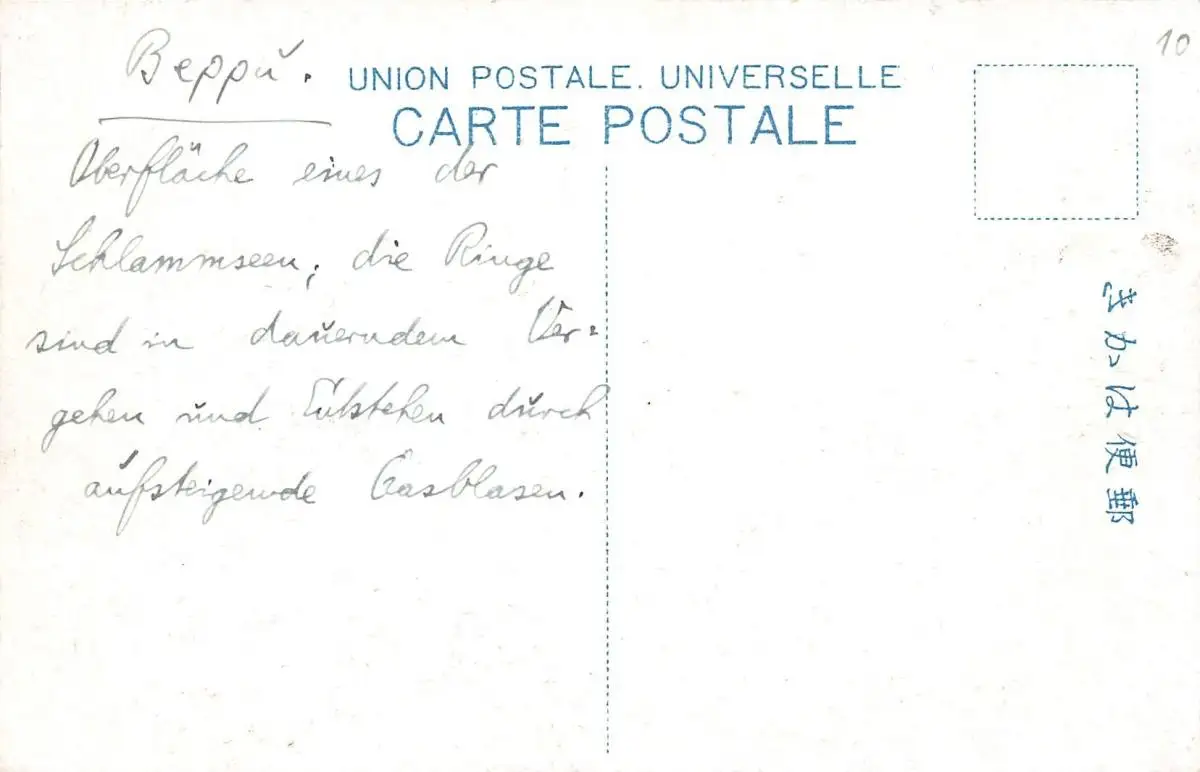 Beppu.
UNION POSTALE. UNIVERSELLE
CARTE POSTALE
10
Oberfläche eines der
Schlammseen; die Ringe
sind in dauerndem Ver=
gehen und Entstehen durch
aufsteigende Gasblasen.
きかは便郵